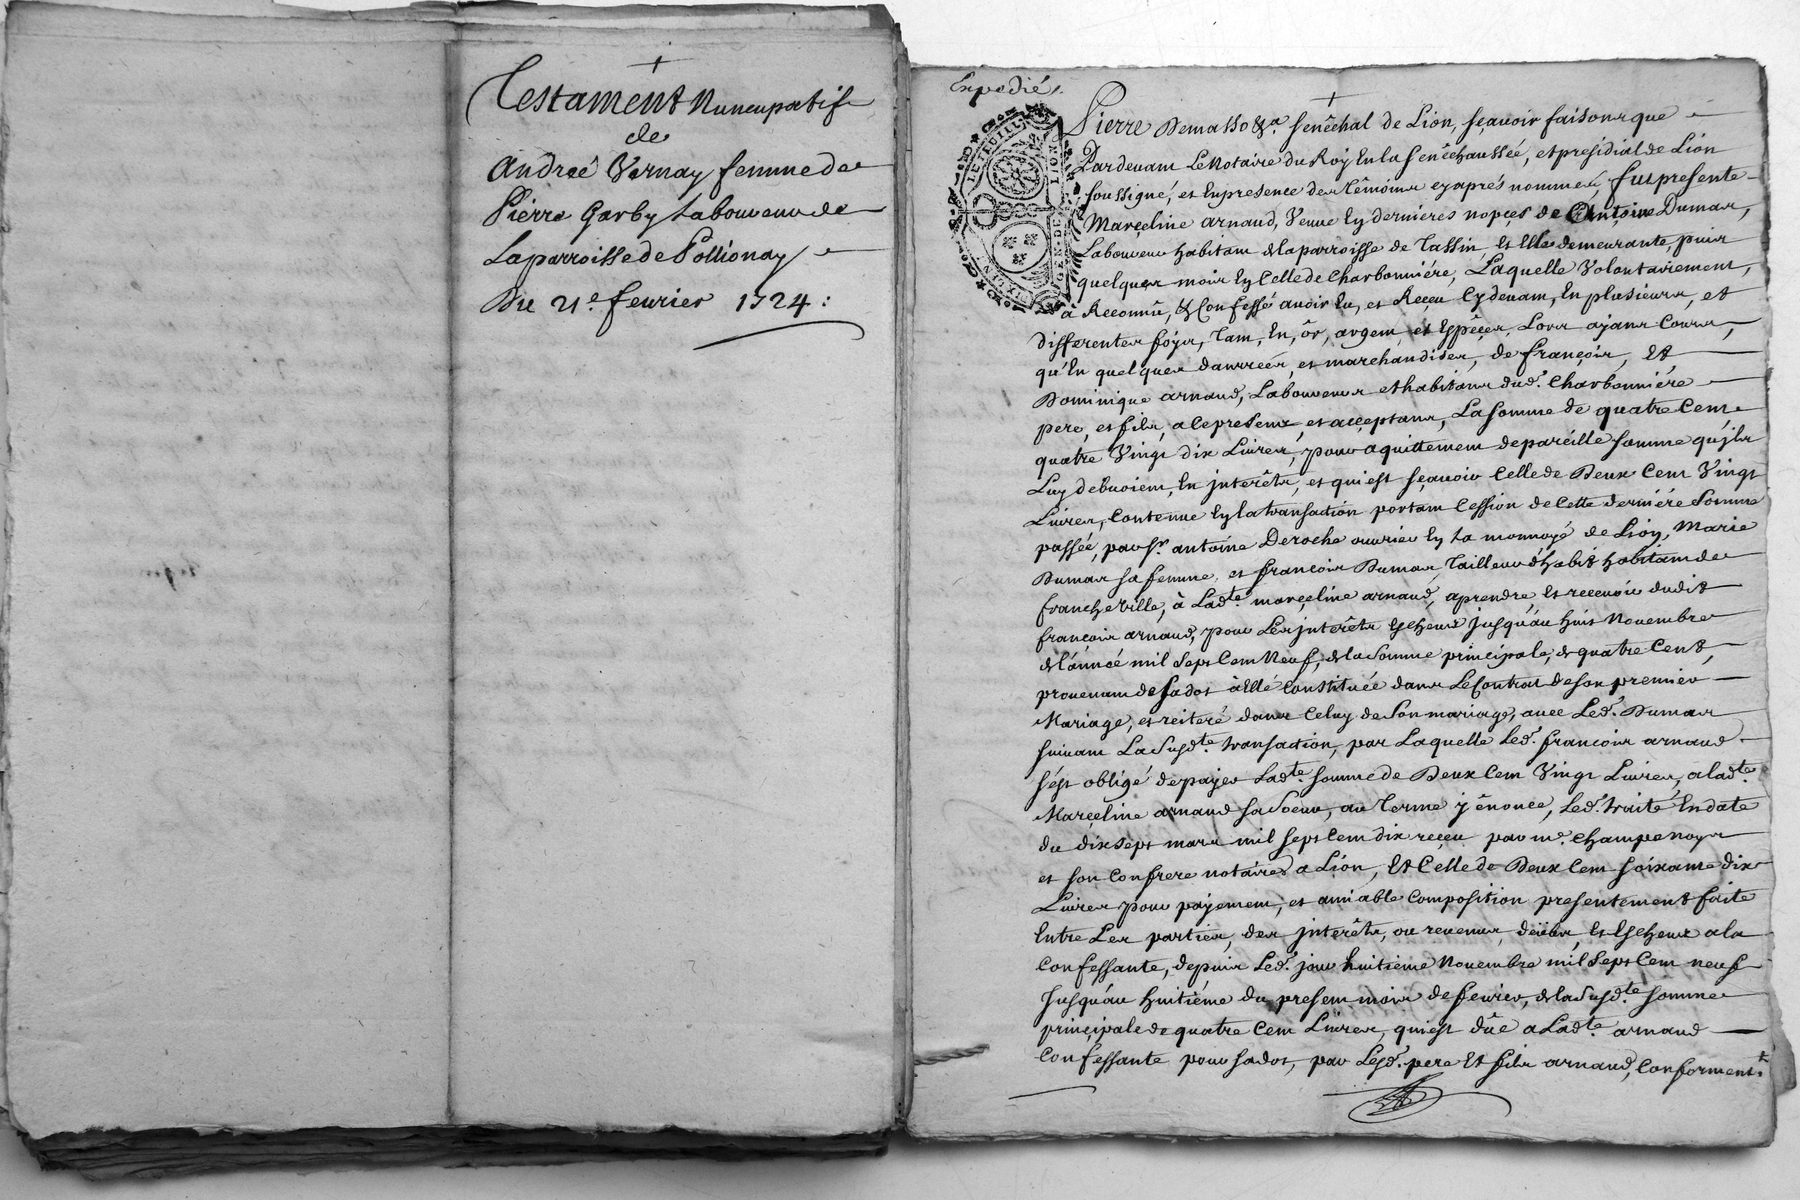 Testament Nuncupatif
de
Andreé Vernay femme de
Pierre Garby Laboureur de
La parroisse de Pollionay
Du 21e. feurier 1724 :
Expedié
Pierre Demasso &a. senêchal de Lion, sçauoir faisons que
Pardeuant Le Notaire du Roÿ En la senêchaussée, et presidial de Lion
soussigné, et En presence des têmoins cy aprés nommés, fut presente
Marçeline arnaud, Veuue En dernieres nopçes de Antoine Dumas,
Laboureur habitant de la parroisse de Tassin, et Elle demeurante, puis
quelques mois En Celle de Charbonniére, Laquelle Volontairement,
a Reconnû, & Confessé auoir Eu, et Reçeu Cy deuant, En plusieurs, et
differentes foÿs, Tant, En, ôr, argent, et Espêçes, Lors aÿans Cours,
qu'En quelques danrrées, et marchandises, de françois, Et
Dominique arnaud, Laboureurs et habitans dud. Charbonniére
pere, et fils, a Ce presens, et acçeptans, La somme de quatre Cent
quatre Vingt dix Liures, pour aquittement de pareille somme qu'jls
Luy débuoient, En jnterêts, et qui est sçauoir Celle de Deux Cent Vingt
Liures, Contenue En la transaction portant Cession de Cette derniére Somme
passée, par Sr. antoine Deroche ouurier En La monnoyé de Lion, Marie
Dumas sa femme, et françois Dumas, Tailleur d'habit habitant de
francheville, à Ladte. marçeline arnaud, a prendre et receuoir dudit
françois arnaud, pour Les jnterêts Escheus jusqu'au huit Nouembre
de l'année mil Sept Cent Neuf, de la Somme principale, de quatre Cent,
prouenant de sa dot à Elle Constituée dans Le Contrat de son premier
Mariage, et reiteré dans Celuy de Son mariage, auec Led. Dumas
suiuant La Susdte. transaction, par Laquelle Led. françois arnaud
s'est obligé de payer Ladte. somme de Deux Cent Vingt Liures, a ladte.
Marçeline arnaud sa Soeur, au Terme y ênonce, Led. traité En date
du dix sept mars mil sept Cent dix reçeu par me. Champenoys
et son Confrere notaires a Lion, Et Celle de Deux Cent soixante dix
Liures pour payement, et amiable Composition presentement faite
Entre Les parties, des jnterêts, ou reuenus, deübs, et Escheus a la
Confessante, depuis Led. jour huitieme Nouembre mil Sept Cent neuf
Jusqu'au huitiéme du present mois de feurier, de la Susdte. somme
prinçipale de quatre Cent Liures, qui est dûe a Ladte. arnaud
Confessante pour sa dot, par Lesd. pere Et fils arnaud, Conformentt.